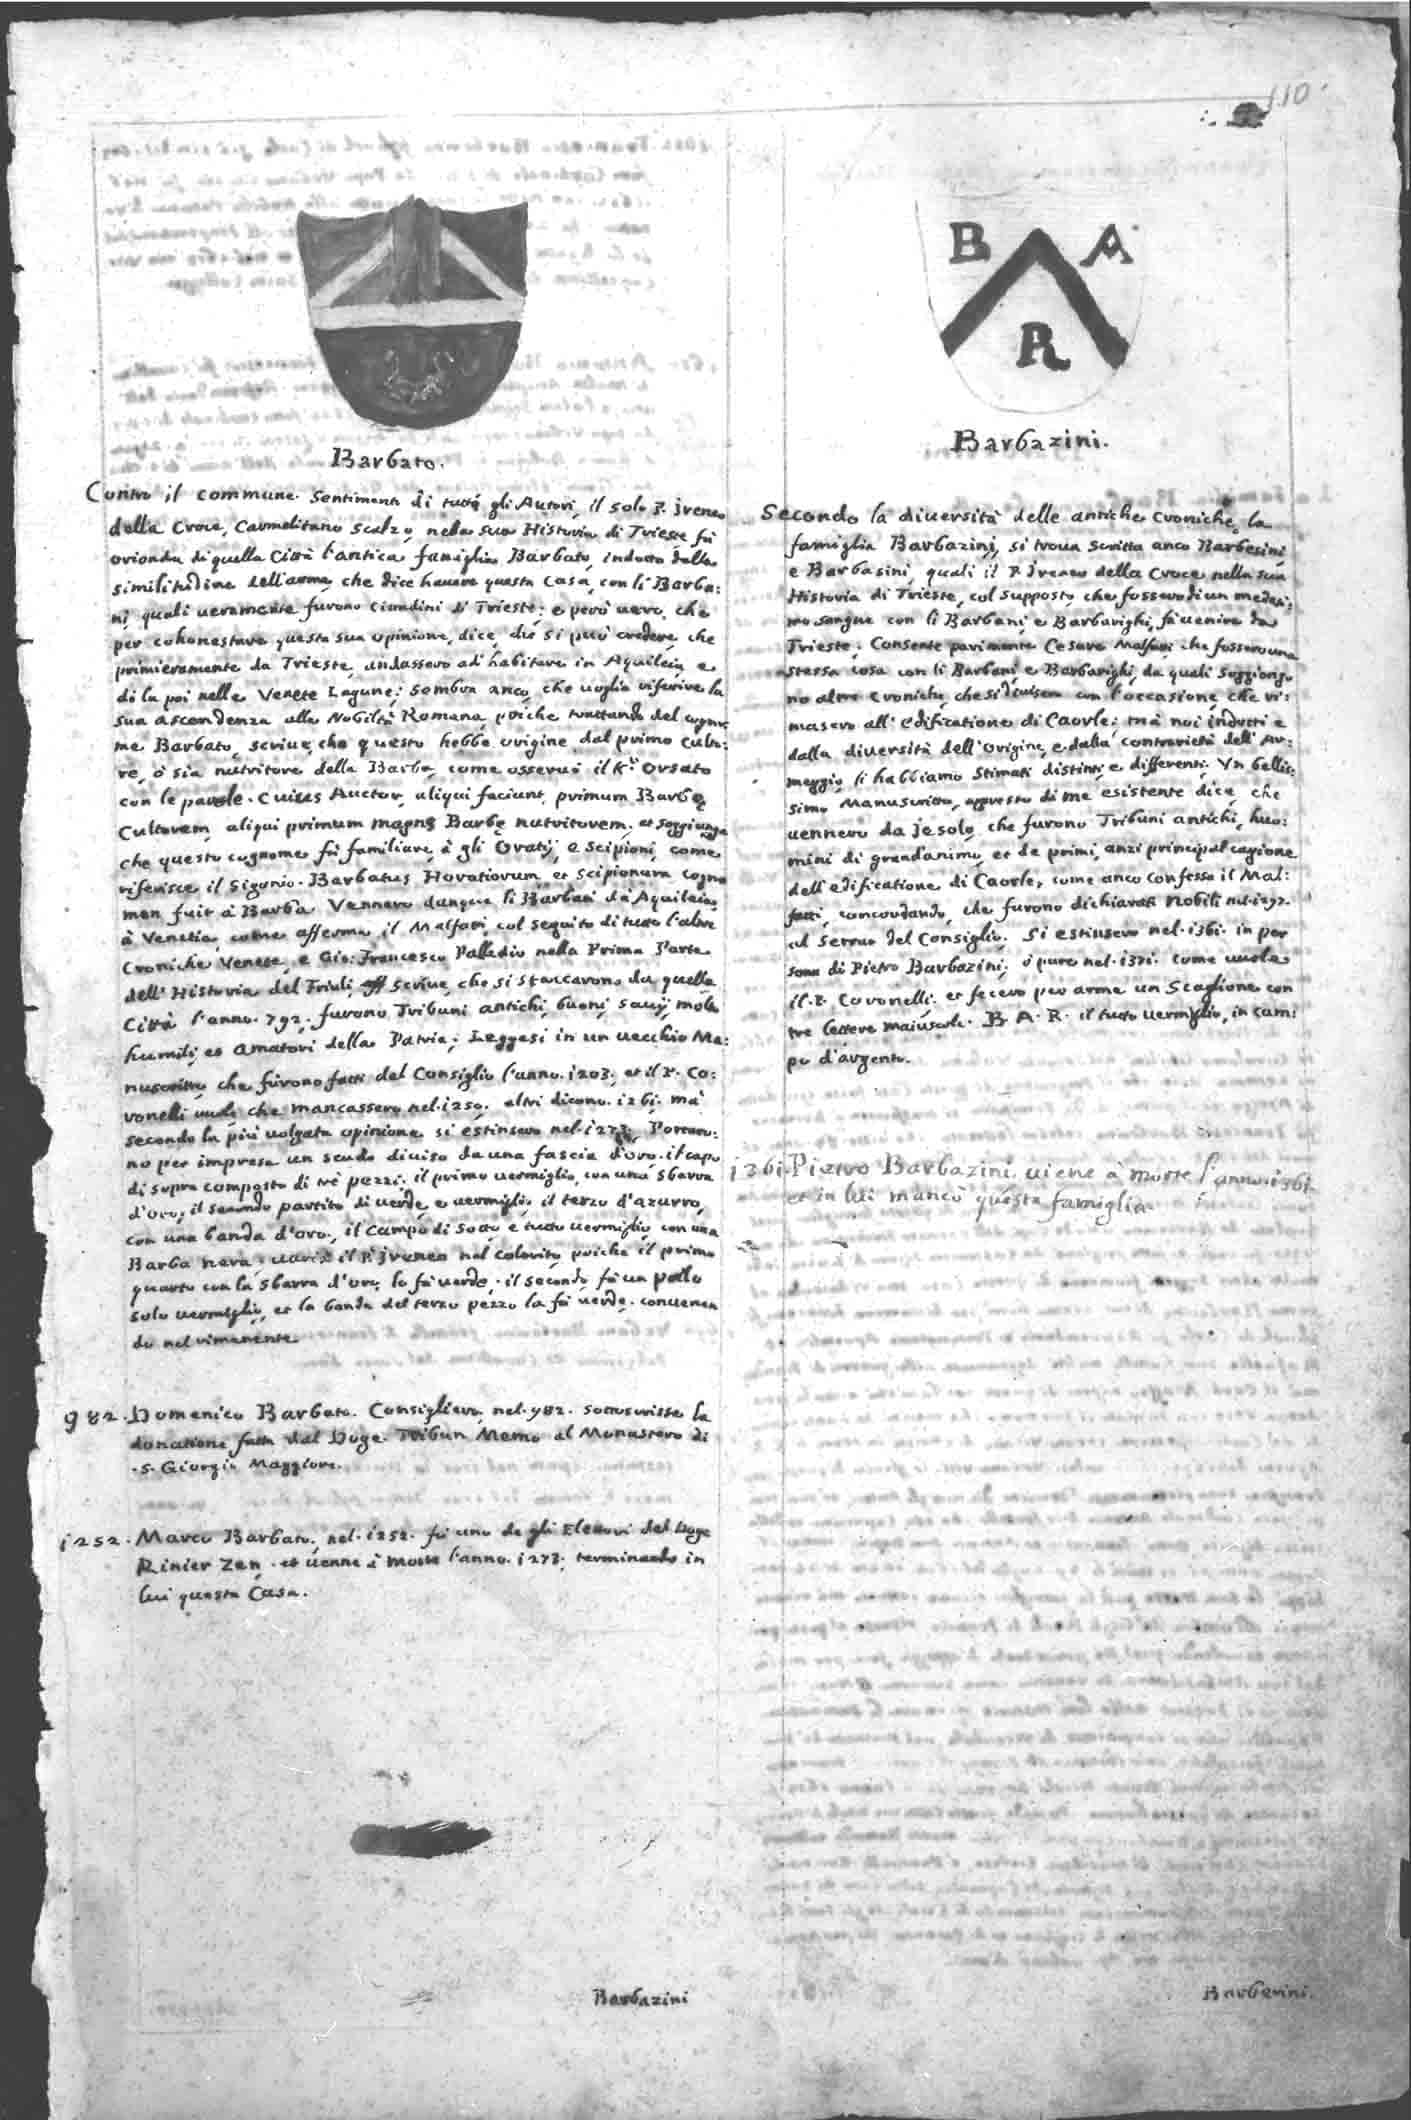 110.
Barbato.
Contro il commune sentimento di tutti gli Autori, il solo P. Ireneo
della Croce, Carmelitano scalzo, nella sua Historia di Trieste fà
orionda di quella Città l'antica famiglia Barbato, indotto dalla
similitudine dell'arma, che dice havere questa Casa, con li Barba:
ni, quali veramente furono Cittadini di Trieste; e però vero, che
per cohonestare questa sua opinione, dice, che si può credere, che
primieramente da Trieste andassero ad habitare in Aquileia, e
di la poi nelle Venete Lagune; sembra anco, che voglia riferire la
sua ascendenza alla Nobiltà Romana, poiche trattando del cogno:
me Barbato, scrive, che questo hebbe origine dal primo Culto:
re, ò sia nutritore della Barba, come osservò il K.r Orsato
con le parole. Cuius Auctor, aliqui faciunt, primum Barbę
Cultorem, aliqui primum magnę Barbę nutritorem; et soggiunge
che questo cognome fù familiare à gli Oratij, e Scipioni, come
riferisce il Sigonio. Barbatus Horatiorum, et Scipionum cogno
men fuit à Barba. Vennero dunque li Barbati da Aquileia
à Venetia, come afferma il Malfatti col seguito di tutte l'altre
Croniche Venete, e Gio: Francesco Palladio nella Prima Parte
dell'Historia del Friuli, scrive, che si staccarono da quella
Città l'anno. 792. furono Tribuni antichi, buoni, savij, molto
humili, et amatori della Patria; Leggesi in un vecchio Ma:
nuscritto, che furono fatti del Consiglio l'anno. 1203. et il P. Co:
ronelli vuole che mancassero nel. 1250. altri dicono. 1261. mà
secondo la più volgata opinione si estinsero nel. 1273. Portaro:
no per impresa un scudo diviso da una fascia d'oro. il capo
di sopra composto di trè pezzi; il primo vermiglio, con una sbarra
d'oro, il secondo partito di verde, e vermiglio, il terzo d'azurro,
con una banda d'oro, il Campo di sotto, e tutto vermiglio, con una
Barba nera; varia il P. Ireneo nel colorito, poiche il primo
quarto con la sbarra d'oro, lo fà verde. il secondo fà un palo
solo vermiglio, et la banda del terzo pezzo la fà verde. convenen
do nel rimanente.
982. Domenico Barbato. Consigliero, nel. 982. sottoscrisse la
donatione fatta dal Doge. Tribun Memo al Monastero di
.S. Giorgio Maggiore.
1252. Marco Barbato, nel. 1252. fù uno de gli Elettori del Doge
Rinier Zen, et venne à morte l'anno. 1273. terminando in
lui questa Casa.
Barbazini
B A
R
Barbazini.
Secondo la diversità delle antiche Croniche, la
famiglia Barbazini, si trova scritta anco Barbesini
e Barbasini, quali il P. Ireneo della Croce nella sua
Historia di Trieste, col supposto che fossero di un medesi:
mo sangue con li Barbani, e Barbarighi, fà venire da
Trieste. Consente parimente Cesare Malfatti che fossero una
stessa cosa con li Barbani, e Barbarighi, da quali soggiongo
no altre Croniche, che si con l'occasione, che ri:
masero all'edificatione di Caorle; mà noi indotti e
dalla diversità dell'origine, e dalla contrarietà dell'Ar:
meggio, li habbiamo stimati distinti, e differenti. Vn bellis:
simo Manuscritto, appresso di me esistente dice, che
vennero da Jesolo, che furono Tribuni antichi, huo:
mini di grand'animo, et de primi, anzi principal cagione
dell'edificatione di Caorle, come anco confessa il Mal:
fatti, concordando, che furono dichiarati Nobili nel. 1297.
al serrar del Consiglio. Si estinsero nel. 1361. in per
sona di Pietro Barbazini; ò pure nel. 1371. come vuole
il. P. Coronelli; et fecero per arme un Scaglione con
tre lettere maiuscole. B. A. R. il tutto vermiglio, in cam:
po d'argento.
1361. Pietro Barbazini. viene à morte l'anno. 1361.
et in lui mancò questa famiglia.
Barberini.